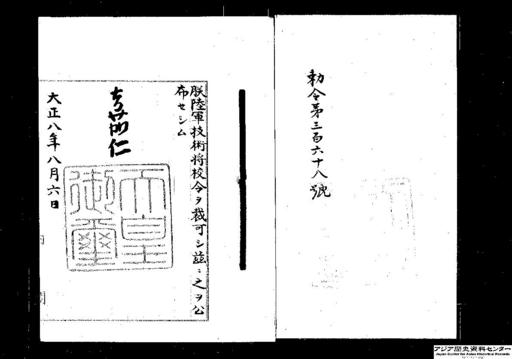 勅令第三百六十八號
朕陸軍技術將校令ヲ裁可シ茲ニ之ヲ公
布セシム
嘉仁
天皇
御璽
大正八年八月六日
アジア歴史資料センター
Japan Center for Asian Historical Records